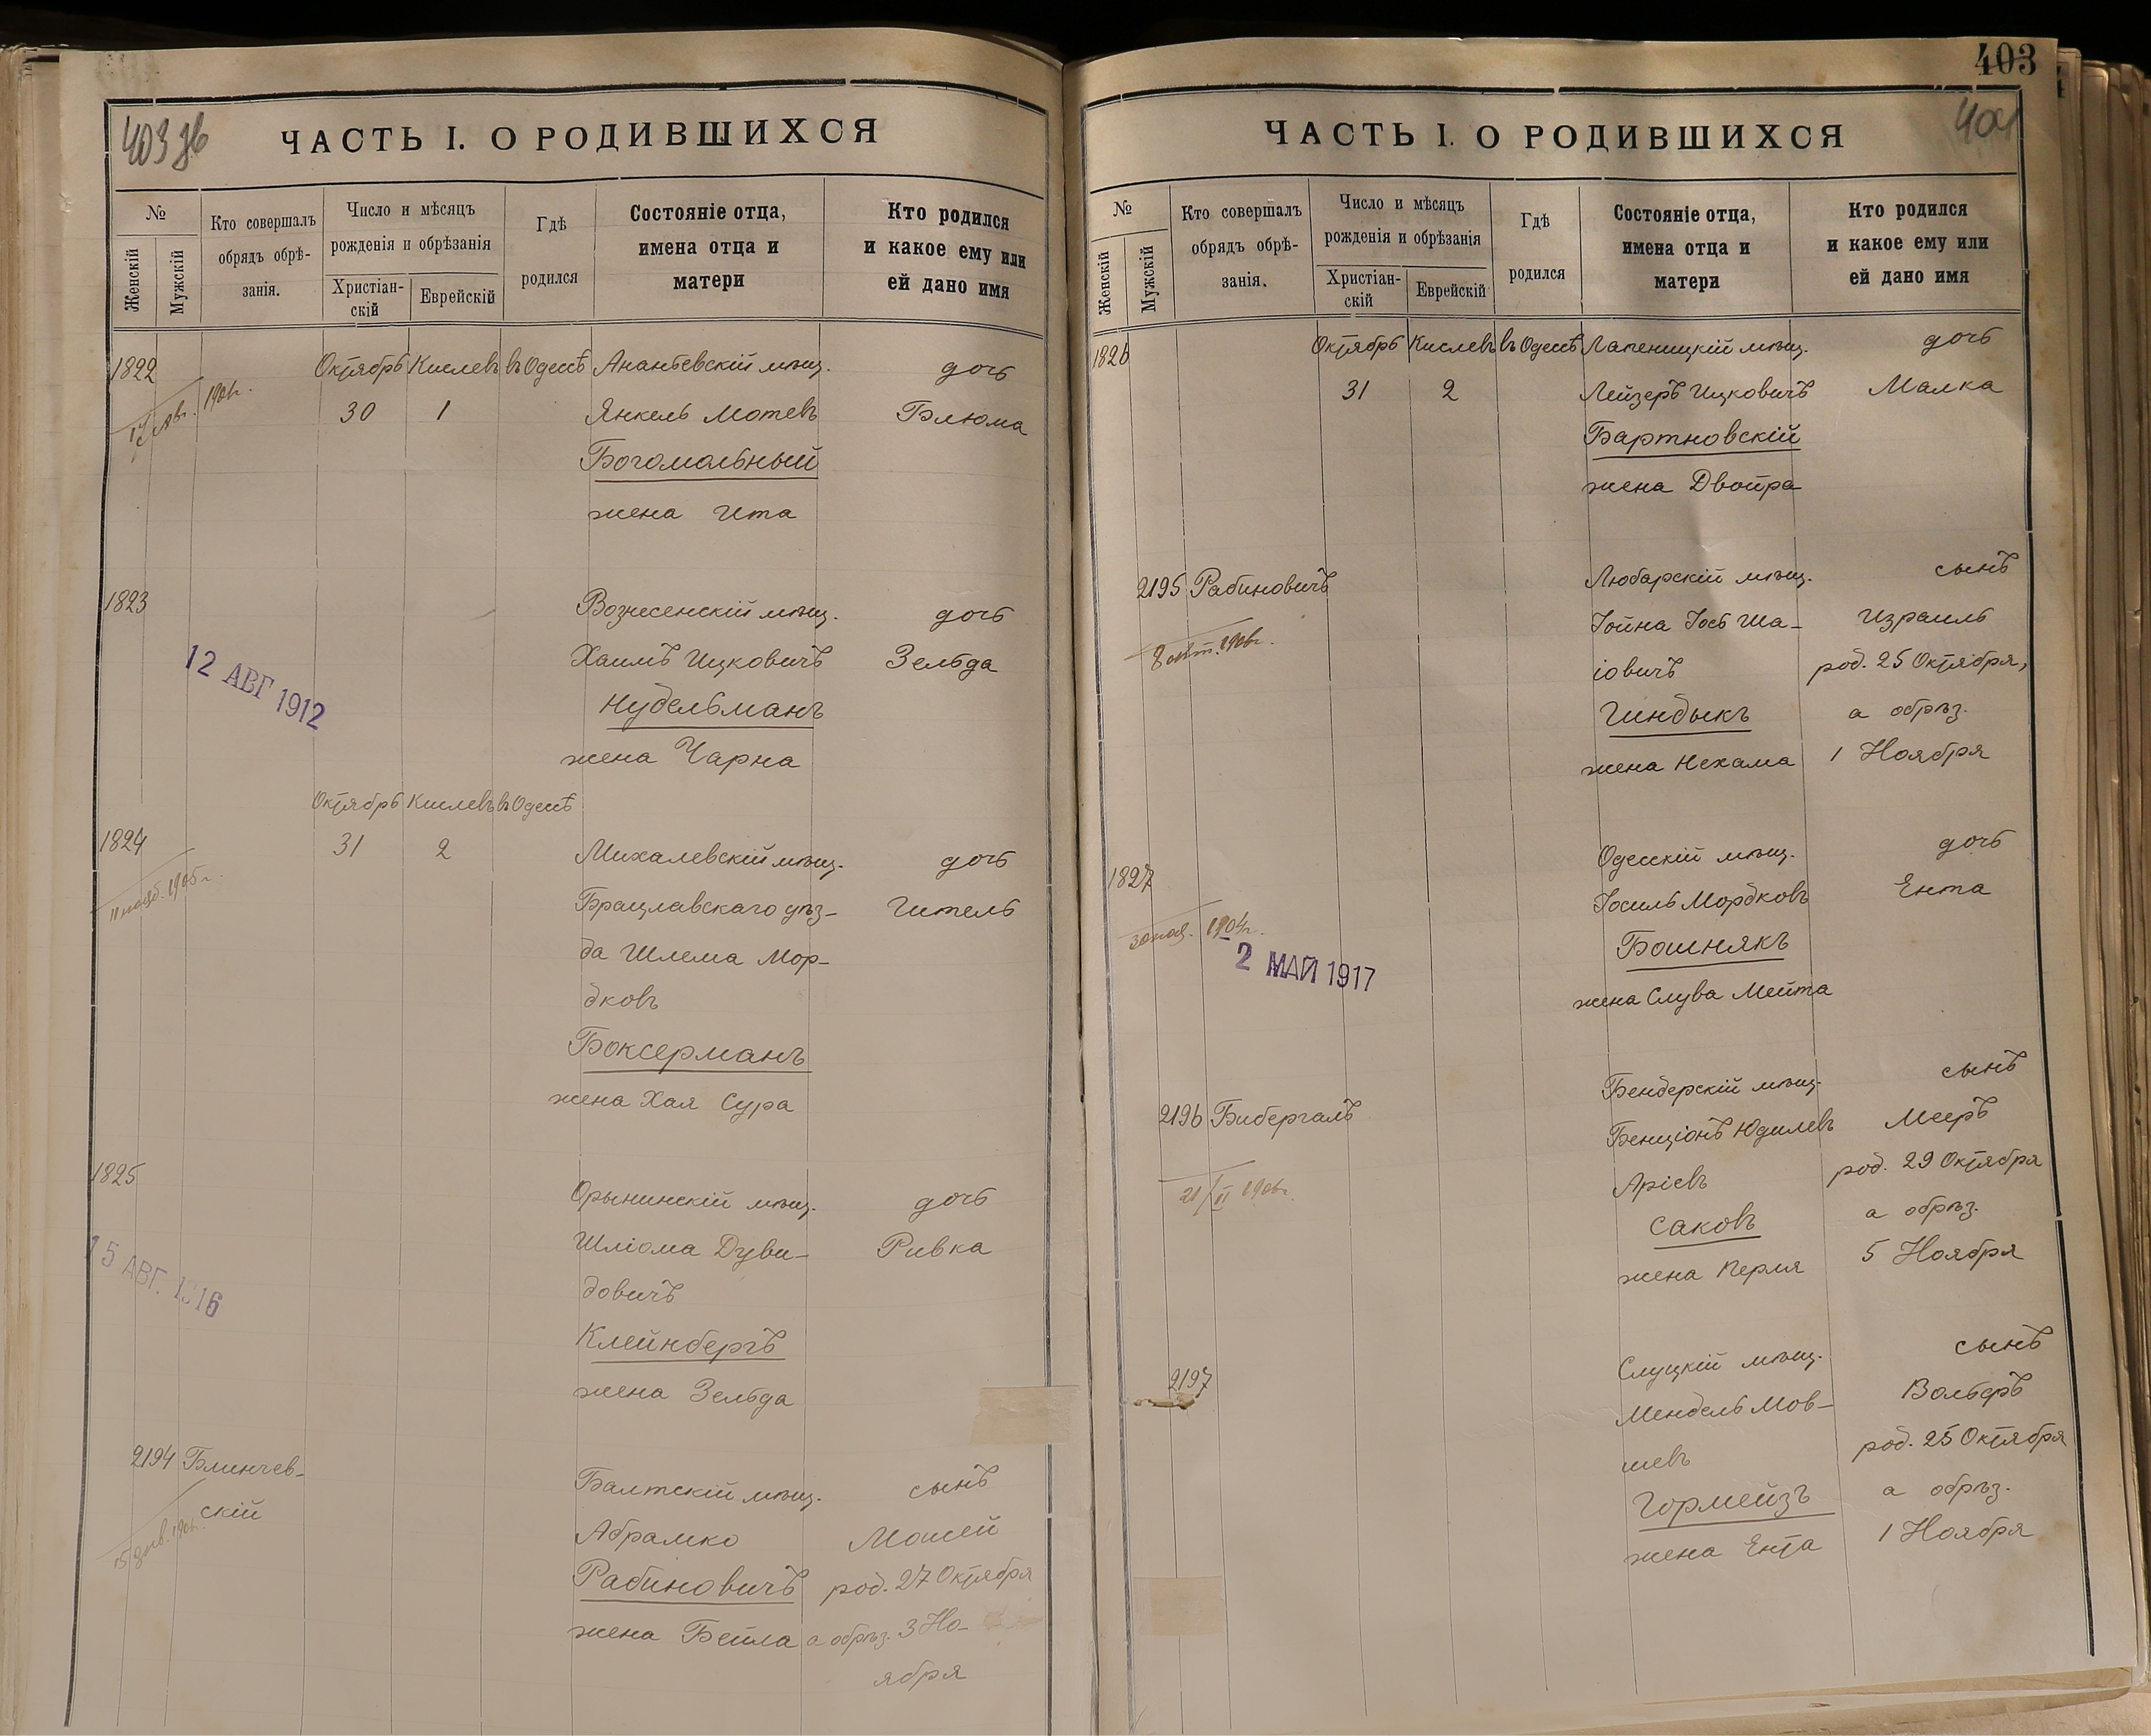 403 зв
ЧАСТЬ I. О РОДИВШИХСЯ
№
Женскій
Мужскій
Кто совершалъ
обрядъ обрѣ-
занія.
Число и мѣсяцъ
рожденія и обрѣзанія
Христіан-
скій
Еврейскій
Гдѣ
родился
Состояніе отца,
имена отца и
матери
Кто родился
и какое ему или
ей дано имя
1822 Октябрь Кислевъ въ Одессѣ Ананьевскій мѣщ. дочь
1906г.
30 1 Янкель Мотевъ Блюма
Богомольный
жена Ита
1823 Вознесенскій мѣщ. дочь
Хаимъ Ицковичъ Зельда
12 АВГ 1912
Нудельманъ
жена Чарна
Октябрь Кислевъ въ Одессѣ
1824 31 2 Михалевскій мѣщ. дочь
11 нояб. 1905г.
Брацлавскаго уѣз-
Гитель
да Шлема Мор-
дковъ
Боксерманъ
жена Хая Сура
1825 Орынинскій мѣщ. дочь
Шліома Дуви- Ривка
15 АВГ. 1916
довичъ
Клейнбергъ
жена Зельда
2194 Блинчев-
скій
Балтскій мѣщ. сынъ
Абрамко Моисей
Рабиновичъ род. 27 Октября
жена Бейла а обрѣз. 3 Но-
ября
403
404
ЧАСТЬ I. О РОДИВШИХСЯ
№
Женскій
Мужскій
Кто совершалъ
обрядъ обрѣ-
занія.
Число и мѣсяцъ
рожденія и обрѣзанія
Христіан-
скій
Еврейскій
Гдѣ
родился
Состояніе отца,
имена отца и
матери
Кто родился
и какое ему или
ей дано имя
1826 Октябрь Кислевъ въ Одессѣ Лапеницкій мѣщ. дочь
31 2 Лейзеръ Ицковичъ Малка
Бартновскій
жена Двойра
2195 Рабиновичъ Любарскій мѣщ. сынъ
Іойна Іось Ша- Израиль
8 окт. 1906г.
іовичъ род. 25 Октября,
Гиндыкъ а обрѣз.
жена Нехама 1 Ноября
1827 Одесскій мѣщ. дочь
Іосиль Мордковъ Ента
30 нояб. 1904г.
Бошнякъ
2 МАЙ 1917
жена Слува Мейта
2196 Бибергалъ Бендерскій мѣщ. сынъ
Бенціонъ Юдилевъ Мееръ
21/II 1906г.
Аріевъ род. 29 Октября
Саковъ а обрѣз.
жена Перля 5 Ноября
2197 Слуцкій мѣщ. сынъ
Мендель Мов- Вольфъ
шевъ род. 25 Октября
Гормейзъ а обрѣз.
жена Ента 1 Ноября